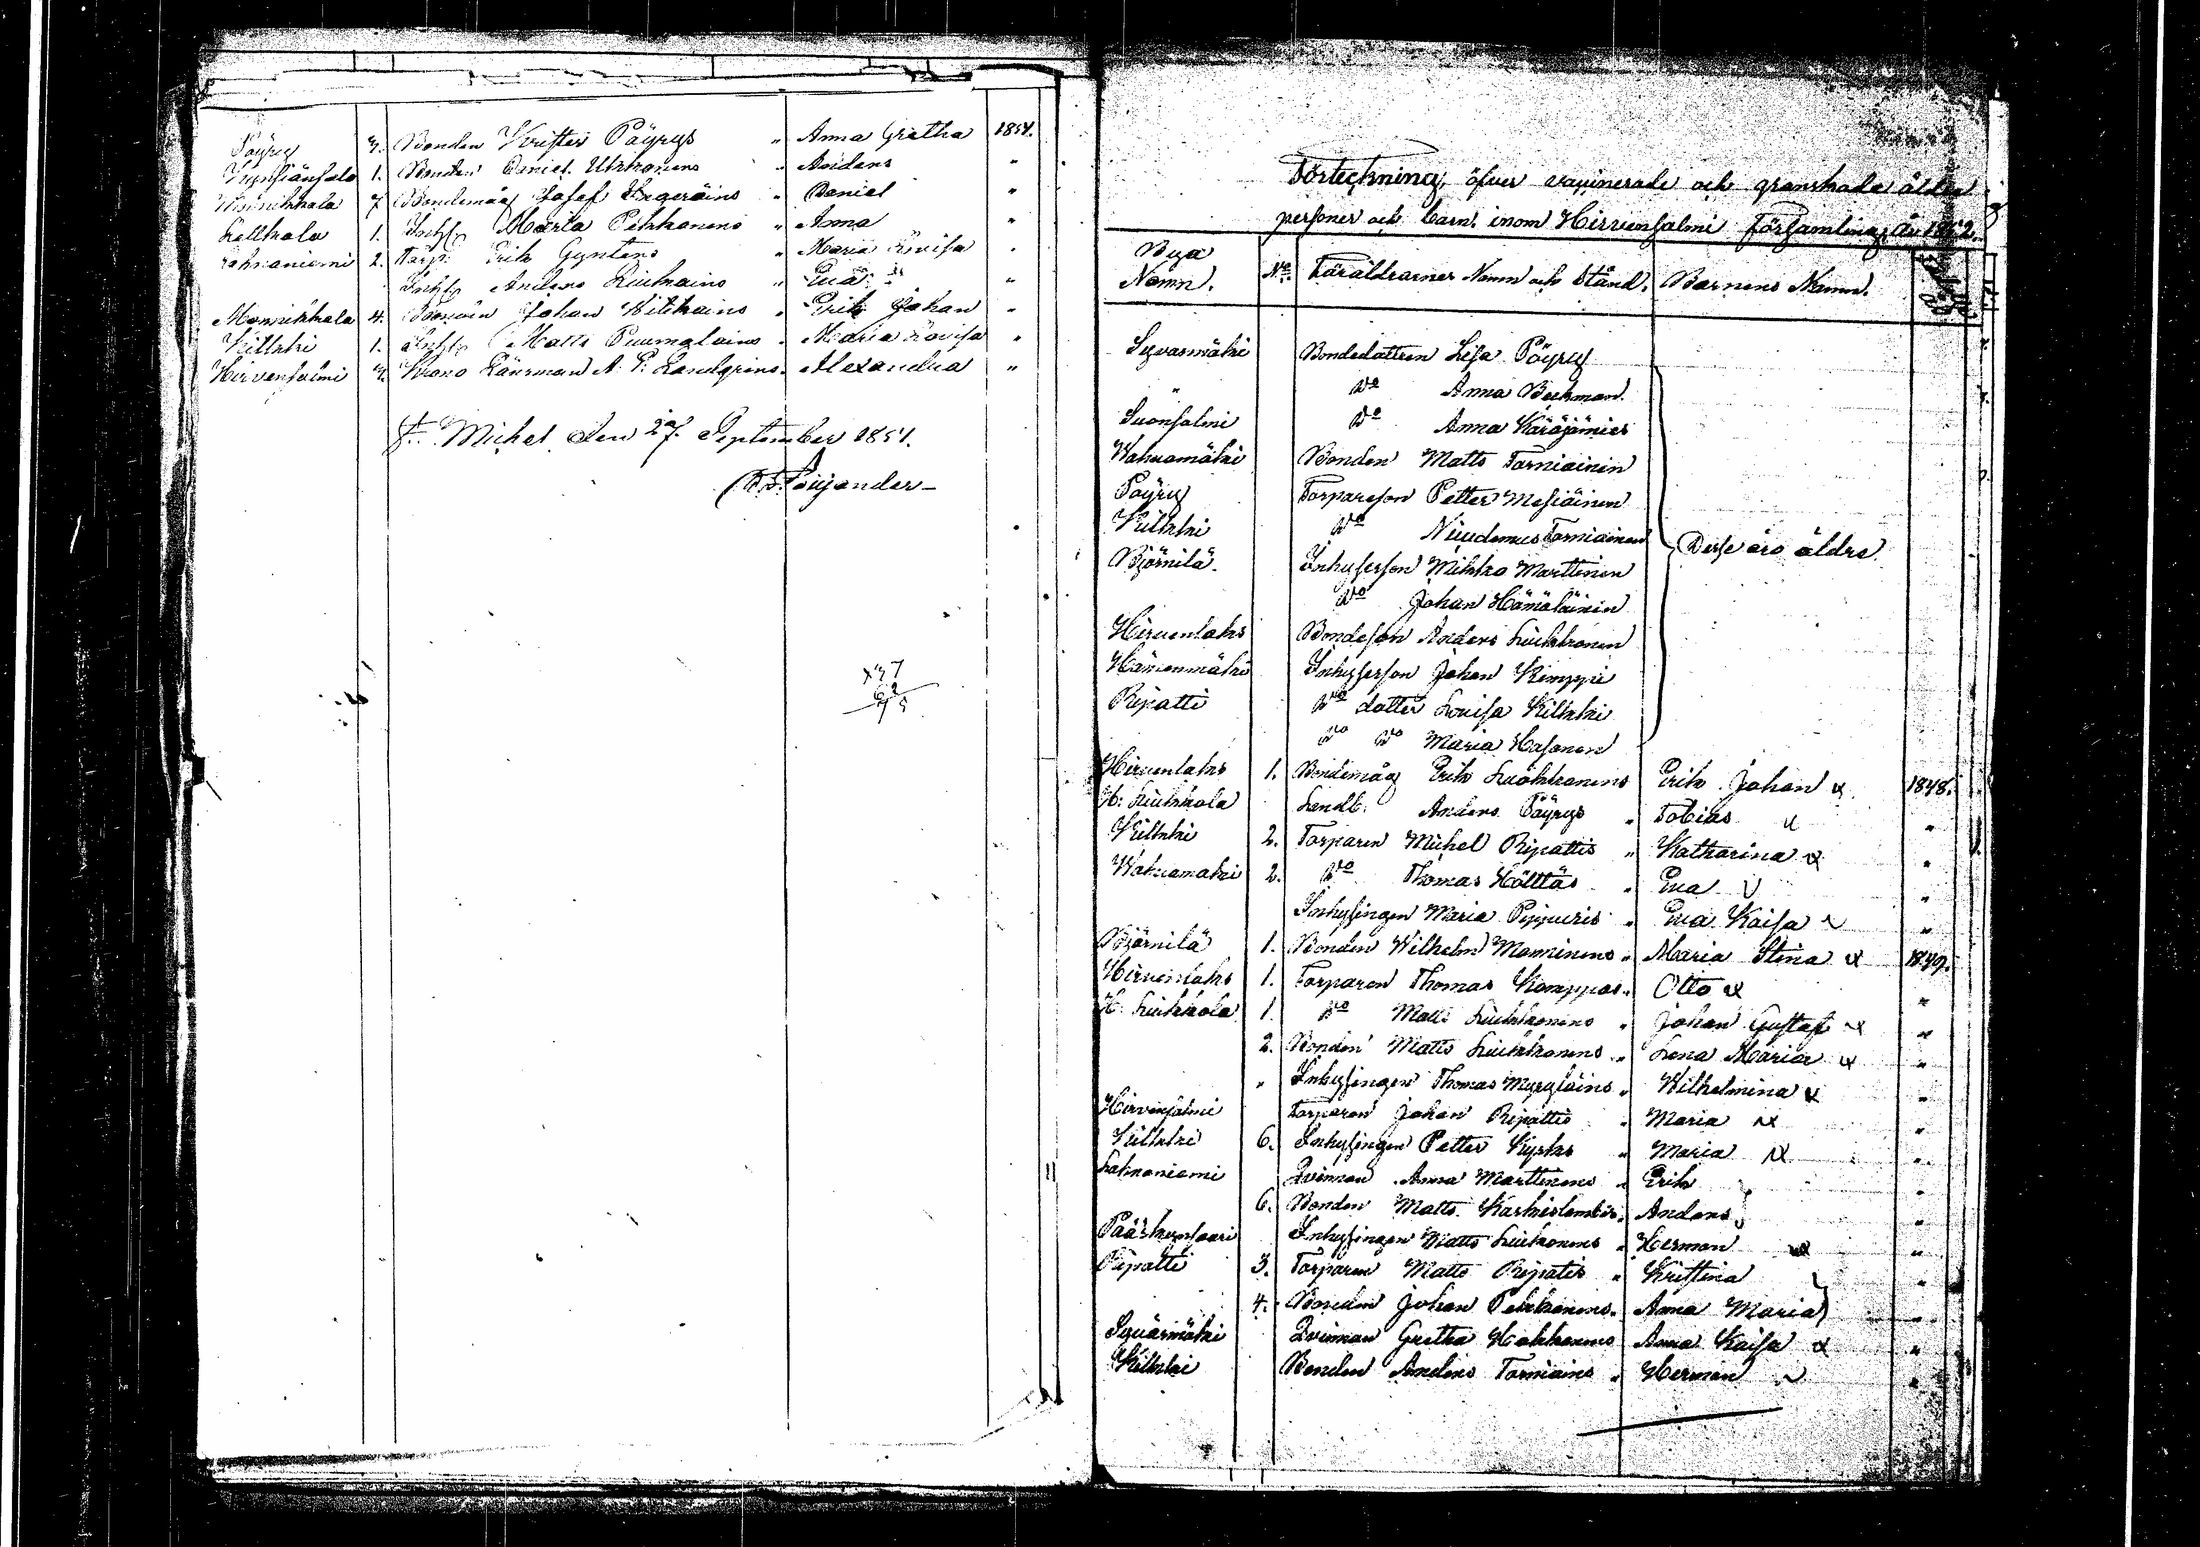 Pöyry 3. Bonden Krister Pöyrys " Anna Gretha 1851.
1. Bonden Daniel Ukkonens " Anders "
7 Bondemåg Josef " Daniel "
1. Inhys Maria Pekkonens " Anna "
Lahnaniemi 2. Torp: Erik Gynters " Maria Lovisa "
Inhys Anders " Eva "
4. Johan " Erik Johan "
Kilkki 1. Inhys Matts Puumalains " Maria Lovisa "
Hirvensalmi 7. Krono Länsman A. P. Landgrens " Alexandra "
St Michel den 27 September 1851.
Förteckning öfver vaccinerade och granskade äldre
personer och barn inom Hirvensalmi församling år 1852.
Bya
Namn. No Föräldrarnes Namn och Stånd. Barnens Namn.
Syvasmäki Bondedottren Lisa Pöyry
" Do Anna Beckman
Suonsalmi Do Anna Käräjämies
Wahvamäki Bonden Matts Torniainin
Pöyry Torpareson Petter Mesiäinen
Kilkki Do Nicudemus Torniainen
Björnilä. Inhysesson Mikko Marttinen
Do Johan Hämäläinin
Hirvenlaks Bondeson Anders Liukkonen
Hämenmäki Inhysesson Johan Kemppi
Ripatti Do dotter Lovisa Kilkki
Do Do Maria Hasonen
Desse äro äldre
Hirvenlaks 1. Bondemåg Erik Luökkonens Erik Johan 1848.
H: Liukkola Landb. Anders Pöyrys " Tobias "
Kilkki 2. Torparen Michel Ripattis " Katharina "
Wahvamäki 2. Do Thomas Hölttäs " Eva "
Inhysingen Maria Pippuris " Eva Kaisa "
Björnilä 1. Bonden Wilhelm Manninens " Maria Stina 1849.
Hirvenlaks 1. Torparen Thomas Kamppas " Otto "
H: Liukkola 1. Do Matts Liukkonens " Johan Gustaf "
2. Bonden Matts Liukkonens " Lena Maria "
" Inhysingen Thomas Myryläins " Wilhelmina "
Hirvensalmi Torparen Johan Ripattis " Maria "
Kilkki 6. Inhysingen Petter Kyrks " Maria "
Lahnaniemi Qvinnan Anna Marttinens " Erik "
6. Bonden Matts Anders "
Pääskynsaari Inhysingen Matts Liukkonens " Herman "
Ripatti 3. Torparen Matts Ripatis " Kristina "
4. Bonden Johan Pekkonens " Anna Maria
Syväsmäki Qvinnan Gretha Hokkanens Anna Kaisa "
Kilkki Bonden Anders Torniains " Herman "